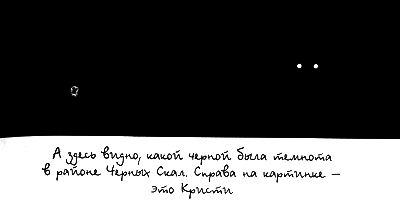 А здесь видно, какой черной была темнота
в районе Черных Скал. Справа на картинке —
это Кристи